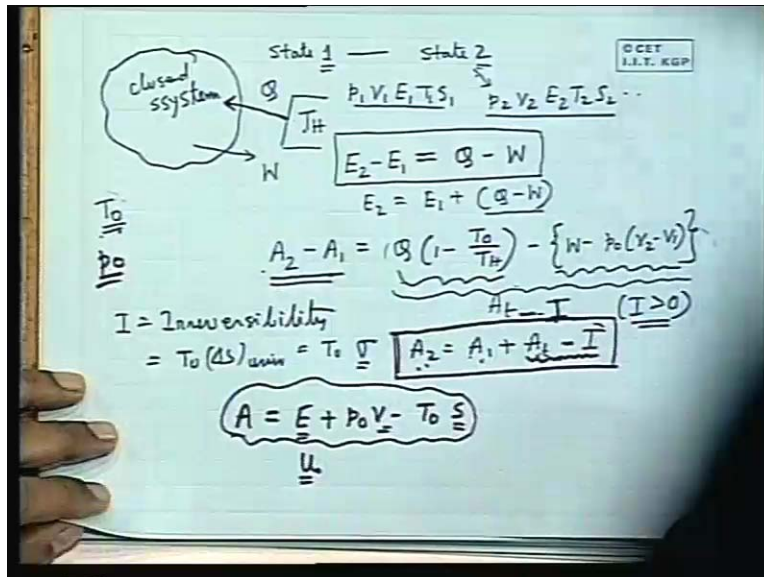 state 1 — state 2
© CET
I.I.T. KGP
closed
ssystem
Q
T_H
W
p₁ V₁ E₁ T₁ S₁
p₂ V₂ E₂ T₂ S₂ ..
E₂ - E₁ = Q - W
E₂ = E₁ + (Q - W)
T₀
p₀
A₂ - A₁ = Q (1 - T₀/T_H) - {W - p₀ (V₂ - V₁)}
A_t - I (I > 0)
I = Irreversibility
= T₀ (ΔS)univ = T₀ σ
A₂ = A₁ + A_t - I
A = E + p₀ V - T₀ S
U